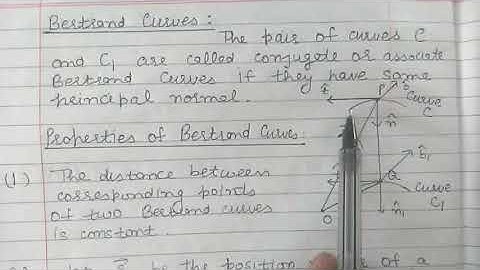 Bertrand Curves :
The pair of curves C
and C₁ are called conjugate or associate
Bertrand Curves if they have same
principal normal.
P
b
curve
C
n̂
Properties of Bertrand Curves:
(1) The distance between
corresponding points
of two Bertrand curves
is constant.
b̂₁
Q
curve
C₁
O
n̂₁
be the position of a